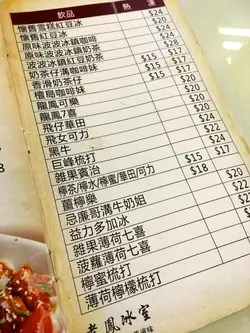 飲品 熱 凍
懷舊雪糕紅豆冰 $24
懷舊紅豆冰 $20
原味波波冰鎮咖啡 $24
波波冰鎮奶茶 $28
奶茶仔溝咖啡妹 $15 $17
香滑奶茶仔 $15 $17
檀島咖啡妹 $15 $17
龍鳳可樂 $20
龍鳳7喜 $20
飛仔華田 $20
飛女可力 $20
黑牛 $24
巨峰梳打 $22
雜果賓治
檸茶/檸水/檸蜜/華田/可力 $15 $17
薑檸樂 $18
忌廉哥溝牛奶姐 $22
益力多加冰 $20
雜果薄荷七喜 $24
菠蘿薄荷七喜 $24
檸蜜梳打 $22
薄荷檸檬梳打 $22
鳳冰室